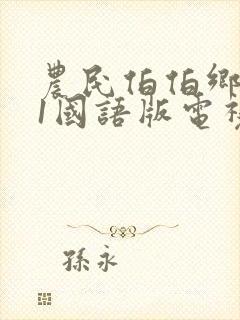 農民伯伯鄉
1國語版電視
孫永